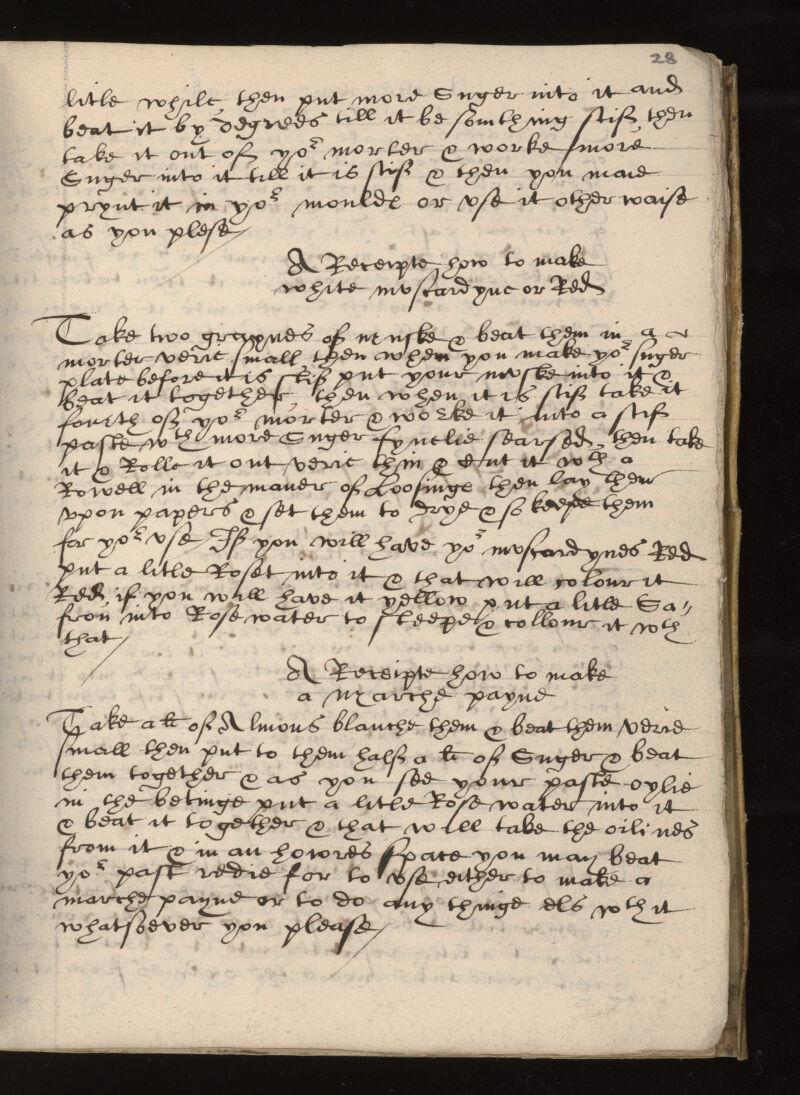 28
litle while, then put more Suger into it and
beat it by degrees till it be somthing stiff, then
take it out of yor morter & worke more
Suger into it till it is stiff & then you maie
prynt it in yor moulde or vse it other waise
as you plese
A Receipte how to make
white mvscardyne or Red
Take two graynes of mvske & beat them in a
morter verie small then when you make yor suger
plate before it is stiff put your mvske into it &
beat it together, then when it is stiff take it
fourth off yor morter & worke it into a stif
paste wth more Suger fynelie searsed, then take
it & Rolle it out verie thin & cut it wth a
Rowell in the maner of Loosinge then lay them
vpon papers & set them to drye & so keepe them
for yor vse, If you will have yor mvscardynes Red
put a litle Roset into it & that will colour it
Red, if you will have it yellow put a litle Sa-
fron into Rosewater to steepe & collour it wth
that
A Receipte how to make
a marche payne
Take a li of Almons blanche them & beat them verie
small then put to them half a li of Suger & beat
them together & as you see your paste oylie
in the betinge put a litle Rose water into it
& beat it together & that will take the oilines
from it & in an howres space you may beat
yor past redie for to vse either to make a
marchepayne or to do any thinge els wth it
whatsoever you please